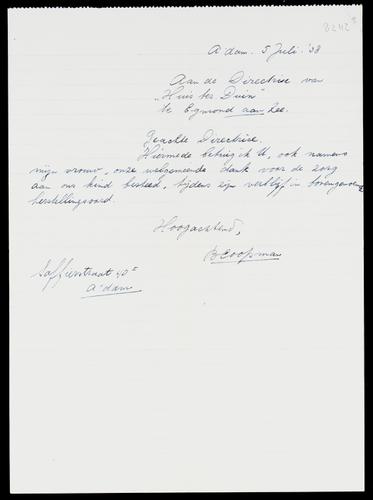 8242
A'dam. 5 Juli. '38
Aan de Directrice van
„Huis ter Duin"
te Egmond aan Zee.
Geachte Directrice.
Hiermede betuig ik U, ook namens
mijn vrouw, onze welgemeende dank voor de zorg
aan ons kind besteed, tijdens zijn verblijf in bovengenoemd
herstellingsoord.
Hoogachtend,
Saffierstraat 40
A'dam